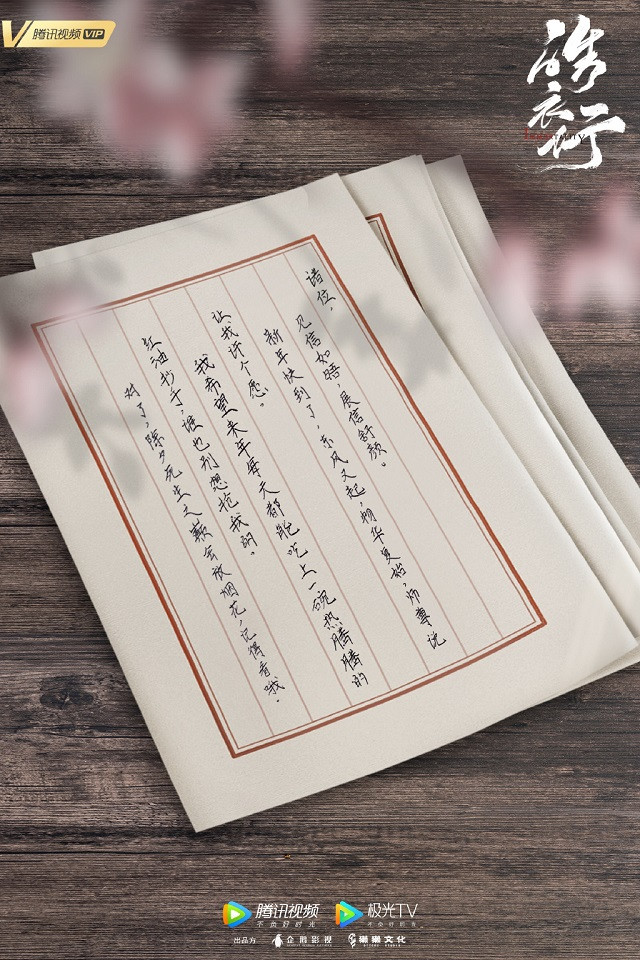 腾讯视频 VIP
皓衣行
诸位，
见信如晤，展信舒颜。
新年快到了，东风又起，物华复始，师尊说
让我许个愿。
我希望来年每天都能吃上一碗热腾腾的
红油抄手，谁也别想抢我的。
对了，除夕死生之巅会放烟花，记得看哦。
腾讯视频
不负好时光
极光TV
出品方
企鹅影视